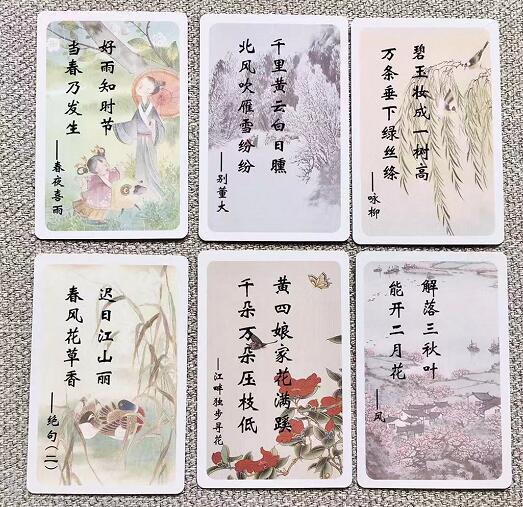 好雨知时节
当春乃发生
——春夜喜雨
千里黄云白日曛
北风吹雁雪纷纷
——别董大
碧玉妆成一树高
万条垂下绿丝绦
——咏柳
迟日江山丽
春风花草香
——绝句（二）
黄四娘家花满蹊
千朵万朵压枝低
——江畔独步寻花
解落三秋叶
能开二月花
——风